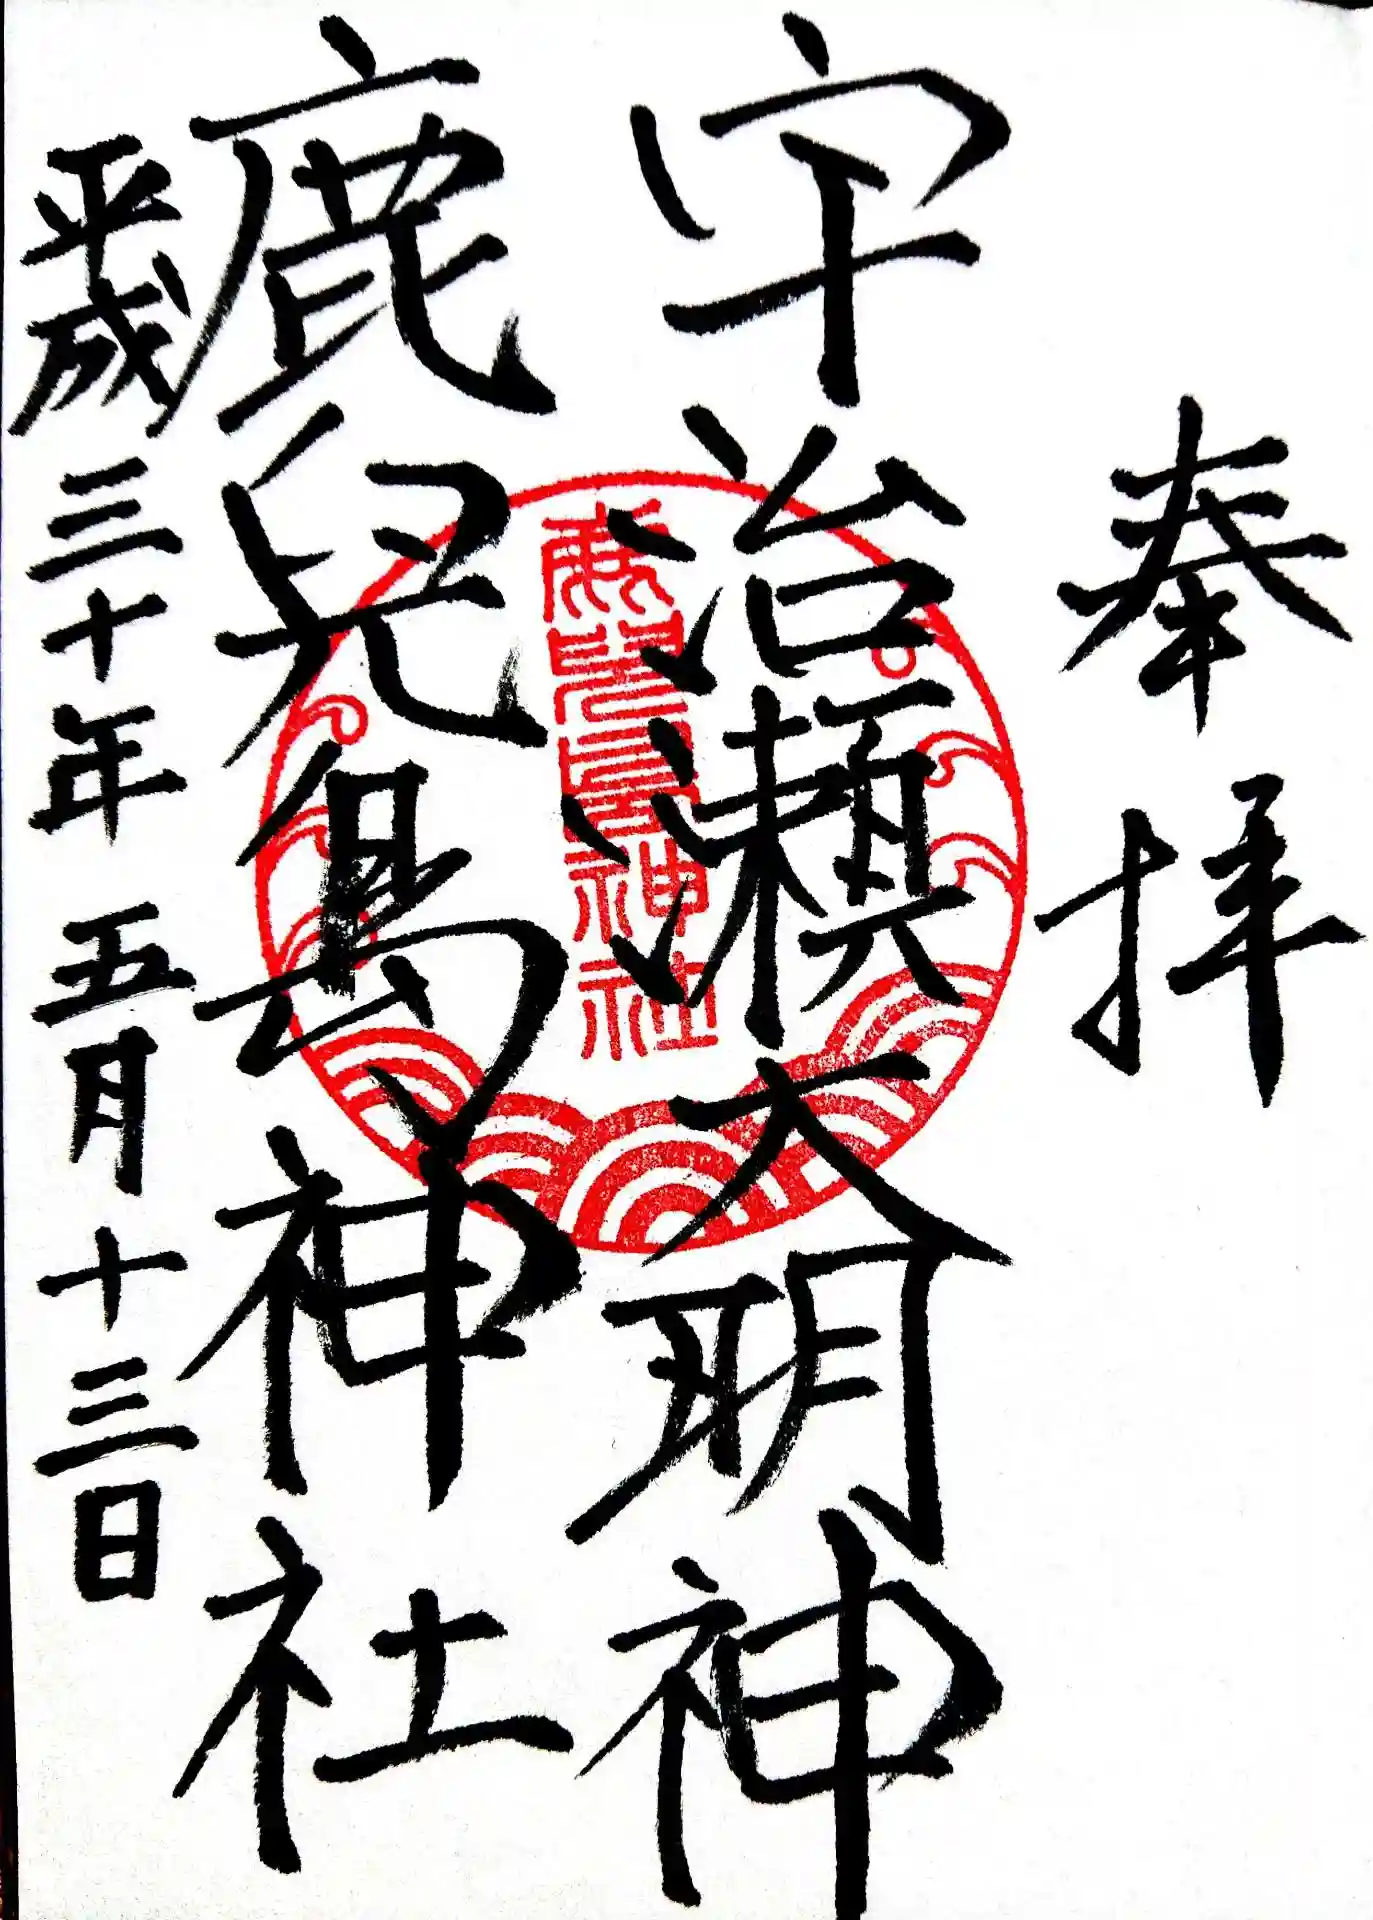 奉拝
宇治瀬大明神
鹿兒島神社
平成三十年五月十三日
鹿兒島神社